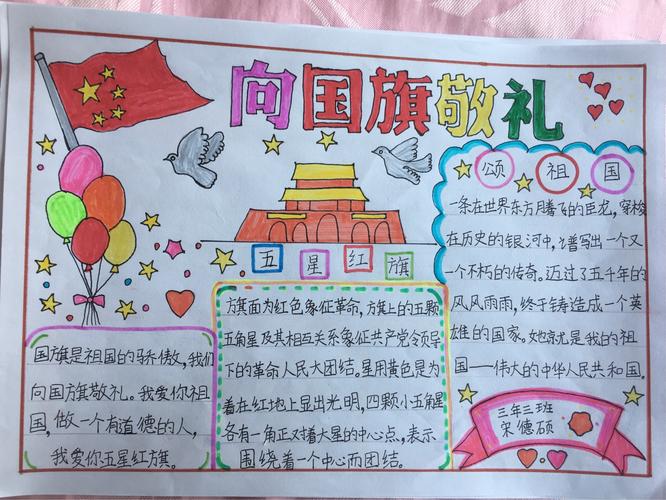 向国旗敬礼
颂祖国
一条在世界东方腾飞的巨龙，穿梭
在历史的银河中，谱写出一个又
一个不朽的传奇。迈过了五千年的
风风雨雨，终于铸造成一个英
雄的国家。她就是我的祖
国——伟大的中华人民共和国。
五星红旗
旗面为红色象征革命，旗上的五颗
五角星及其相互关系象征共产党领导
下的革命人民大团结。星用黄色是为
着在红地上显出光明，四颗小五角星
各有一角正对着大星的中心点，表示
围绕着一个中心而团结。
国旗是祖国的骄傲，我们
向国旗敬礼。我爱你祖
国，做一个有道德的人，
我爱你五星红旗。
三年三班
宋德硕